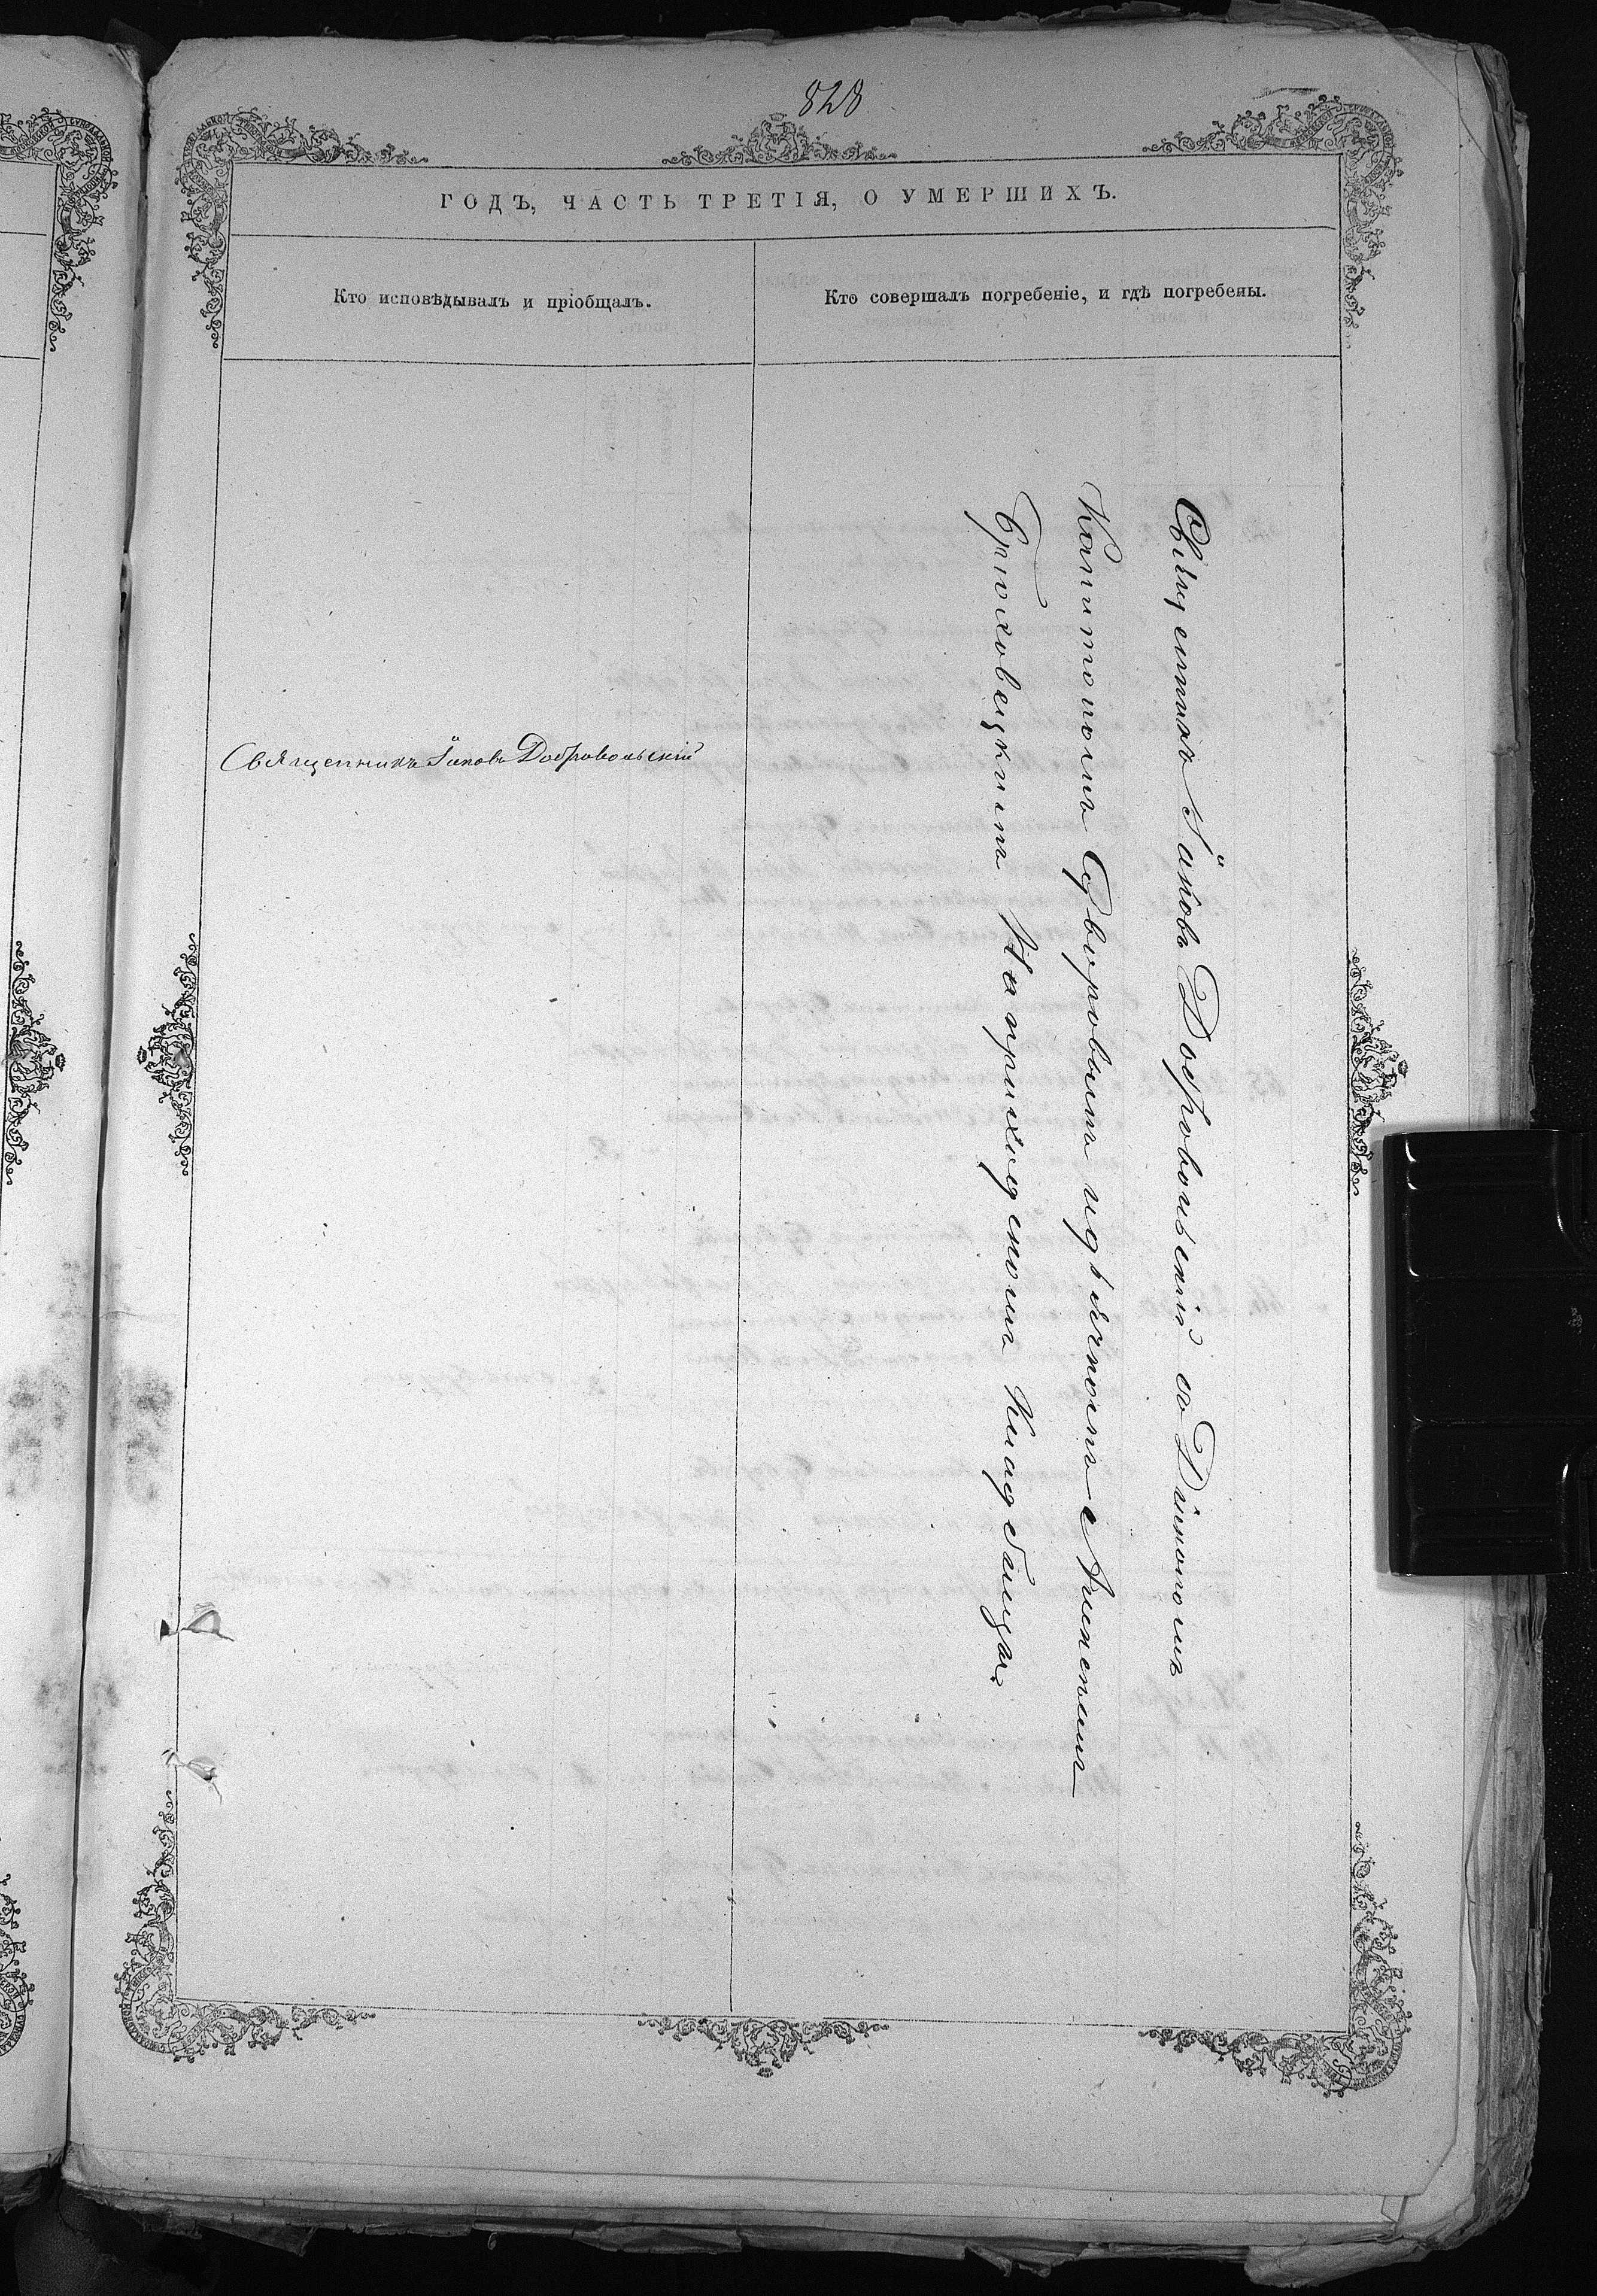 828
ГОДЪ, ЧАСТЬ ТРЕТІЯ, О УМЕРШИХЪ.
Кто исповѣдывалъ и пріобщалъ.
Кто совершалъ погребеніе, и гдѣ погребены.
Священникъ Іаковъ Добровольскій
Священникъ Іаковъ Добровольскій со Діякономъ
Капитономъ Суворовымъ и дьячкомъ
Брюховецкимъ На приходскомъ кладбищѣ